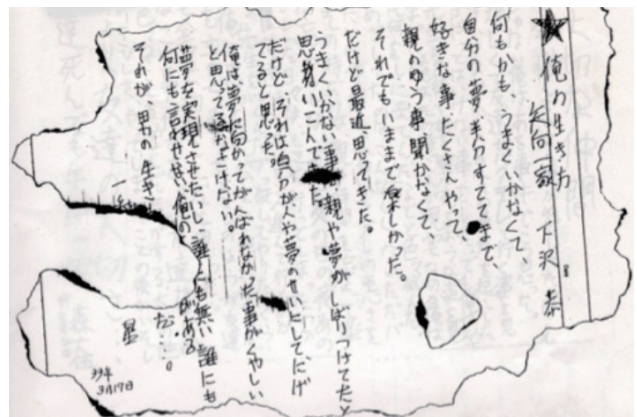 ★俺の生き方
矢向一家 下沢
何もかも、うまくいかなくて、
自分の夢、半分すててまで、
好きな事、たくさんやって、
親のゆう事聞かなくて、
それでもいままで楽しかった。
だけど最近思ってきた。
うまくいかない事 親や夢がしばりつけてたと
思 いこんで た
だけど、それは自分が人や夢のせいにしてにげ
てると思った。
俺は夢に向かってがん れなかった事がくやしい
と思ってる なさけない。
夢を実現させたいし、誰 も無い誰にも
何にも言わせない俺の がある
それが、男の生き だ…。
一 星
33年
3月17日